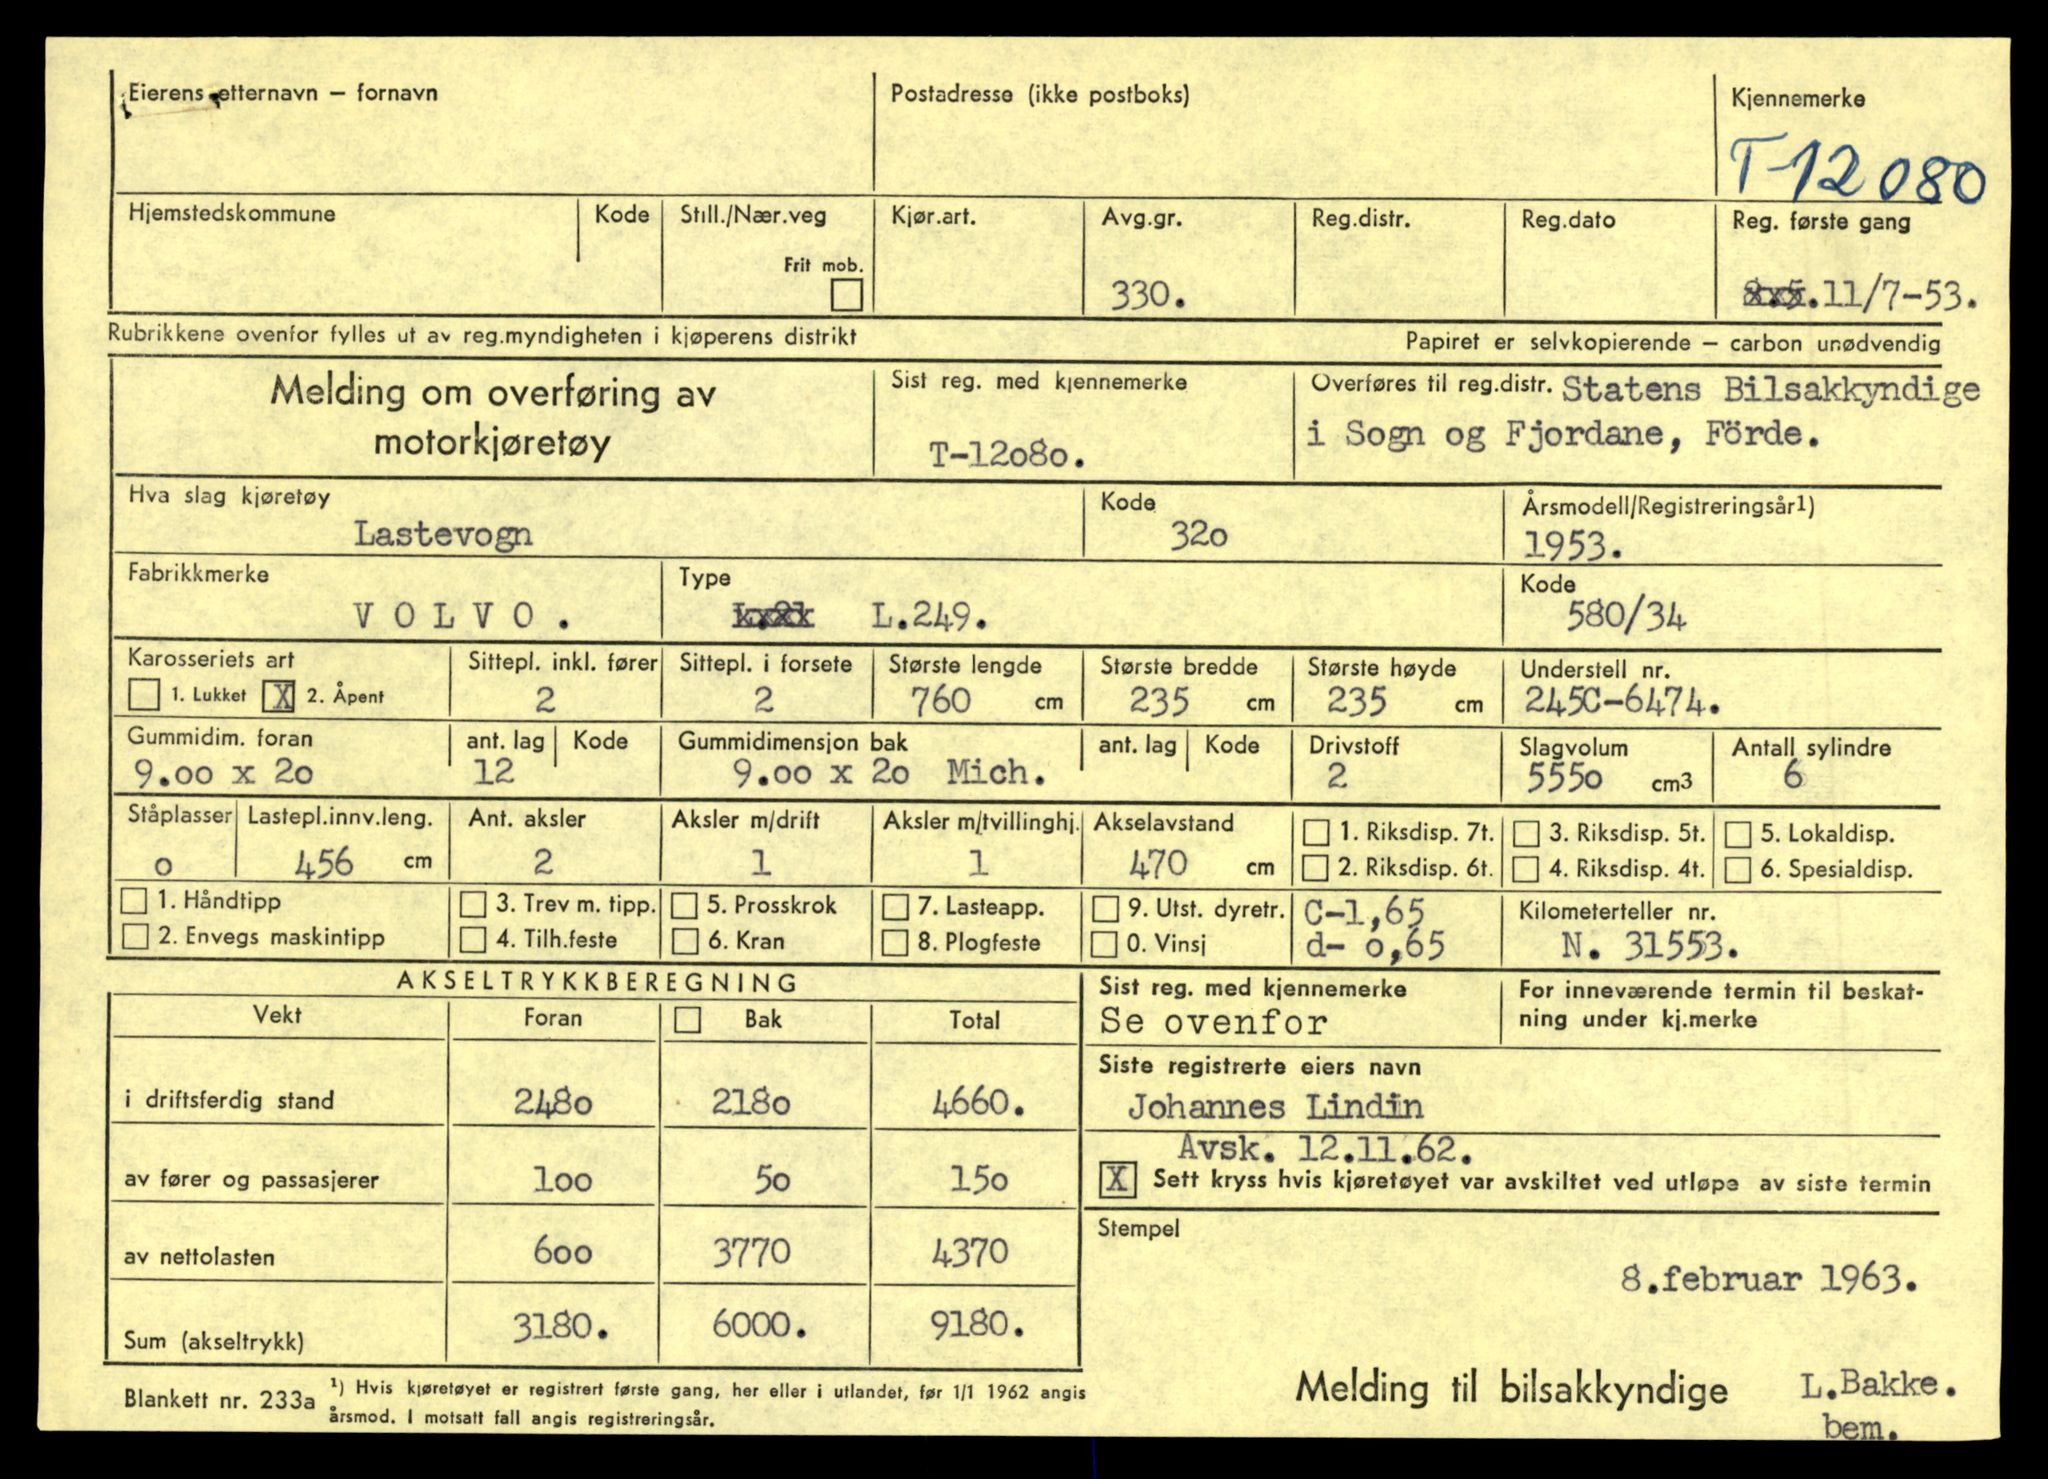 Eierens etternavn – fornavn
Postadresse (ikke postboks)
Kjennemerke
T-12080
Hjemstedskommune
Kode
Still./Nær.veg
Frit mob.
Kjør.art.
Avg.gr.
330.
Reg.distr.
Reg.dato
Reg. første gang
11/7-53.
Rubrikkene ovenfor fylles ut av reg.myndigheten i kjøperens distrikt
Papiret er selvkopierende – carbon unødvendig
Melding om overføring av
motorkjøretøy
Sist reg. med kjennemerke
T-12o8o.
Overføres til reg.distr. Statens Bilsakkyndige
i Sogn og Fjordane, Förde.
Hva slag kjøretøy
Lastevogn
Kode
32o
Årsmodell/Registreringsår1)
1953.
Fabrikkmerke
V O L V O .
Type
L.249.
Kode
580/34
Karosseriets art
1. Lukket X 2. Åpent
Sittepl. inkl. fører
2
Sittepl. i forsete
2
Største lengde
760 cm
Største bredde
235 cm
Største høyde
235 cm
Understell nr.
245C-6474.
Gummidim. foran
9.oo x 2o
ant. lag
12
Kode
Gummidimensjon bak
9.oo x 2o Mich.
ant. lag
Kode
Drivstoff
2
Slagvolum
555o cm3
Antall sylindre
6
Ståplasser
o
Lastepl.innv.leng.
456 cm
Ant. aksler
2
Aksler m/drift
1
Aksler m/tvillinghj.
1
Akselavstand
470 cm
1. Riksdisp. 7t.
2. Riksdisp. 6t.
3. Riksdisp. 5t.
4. Riksdisp. 4t.
5. Lokaldisp.
6. Spesialdisp.
1. Håndtipp
2. Envegs maskintipp
3. Trev m. tipp.
4. Tilh.feste
5. Prosskrok
6. Kran
7. Lasteapp.
8. Plogfeste
9. Utst. dyretr.
0. Vinsj
C-1,65
d- o,65
Kilometerteller nr.
N. 31553.
AKSELTRYKKBEREGNING
Vekt Foran Bak Total
i driftsferdig stand 248o 218o 4660.
av fører og passasjerer 1oo 5o 15o
av nettolasten 6oo 3770 4370
Sum (akseltrykk) 3180. 6000. 9180.
Sist reg. med kjennemerke
Se ovenfor
For inneværende termin til beskat-
ning under kj.merke
Siste registrerte eiers navn
Johannes Lindin
Avsk. 12.11.62.
X Sett kryss hvis kjøretøyet var avskiltet ved utløpe av siste termin
Stempel
8.februar 1963.
Blankett nr. 233a
1) Hvis kjøretøyet er registrert første gang, her eller i utlandet, før 1/1 1962 angis
årsmod. I motsatt fall angis registreringsår.
Melding til bilsakkyndige
L.Bakke.
bem.